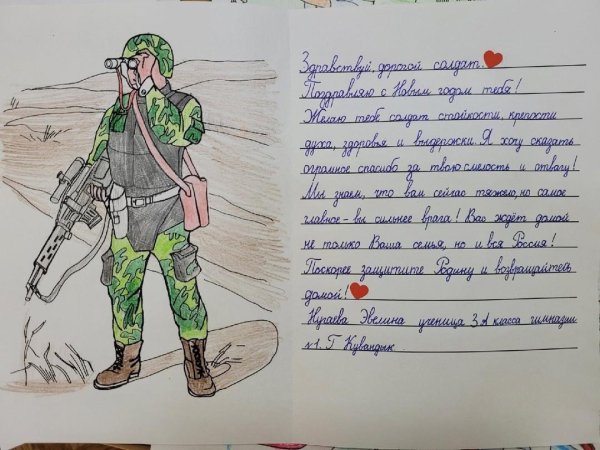 Здравствуй, дорогой солдат.
Поздравляю с Новым годом тебя!
Желаю тебе солдат стойкости, крепости
духа, здоровья и выдержки. Я хочу сказать
огромное спасибо за твою смелость и отвагу!
Мы знаем, что вам сейчас тяжело, но самое
главное - вы сильнее врага! Вас ждёт домой
не только Ваша семья, но и вся Россия!
Поскорее защитите Родину и возвращайтесь
домой!
Нугаева Эвелина ученица 3А класса гимназии
№1. Г Кувандык